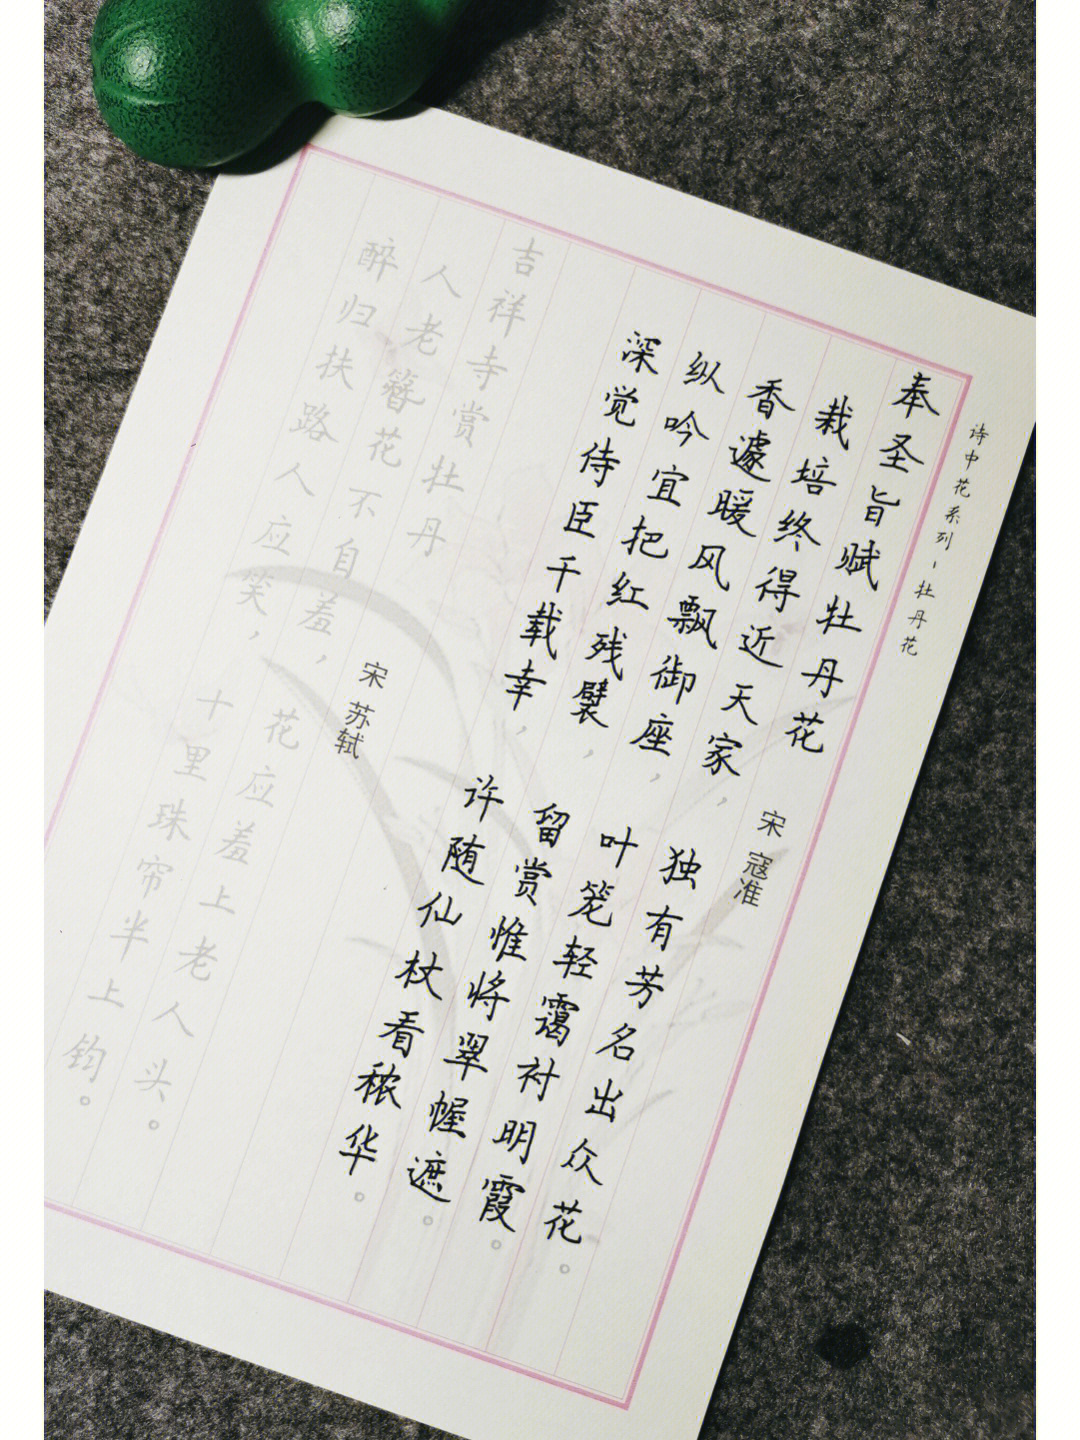 诗中花系列-牡丹花
奉圣旨赋牡丹花
宋 寇准
栽培终得近天家，独有芳名出众花。
香遽暖风飘御座，叶笼轻霭衬明霞。
纵吟宜把红残襞，留赏惟将翠幄遮。
深觉侍臣千载幸，许随仙杖看秾华。
吉祥寺赏牡丹
宋 苏轼
人老簪花不自羞，花应羞上老人头。
醉归扶路人应笑，十里珠帘半上钩。